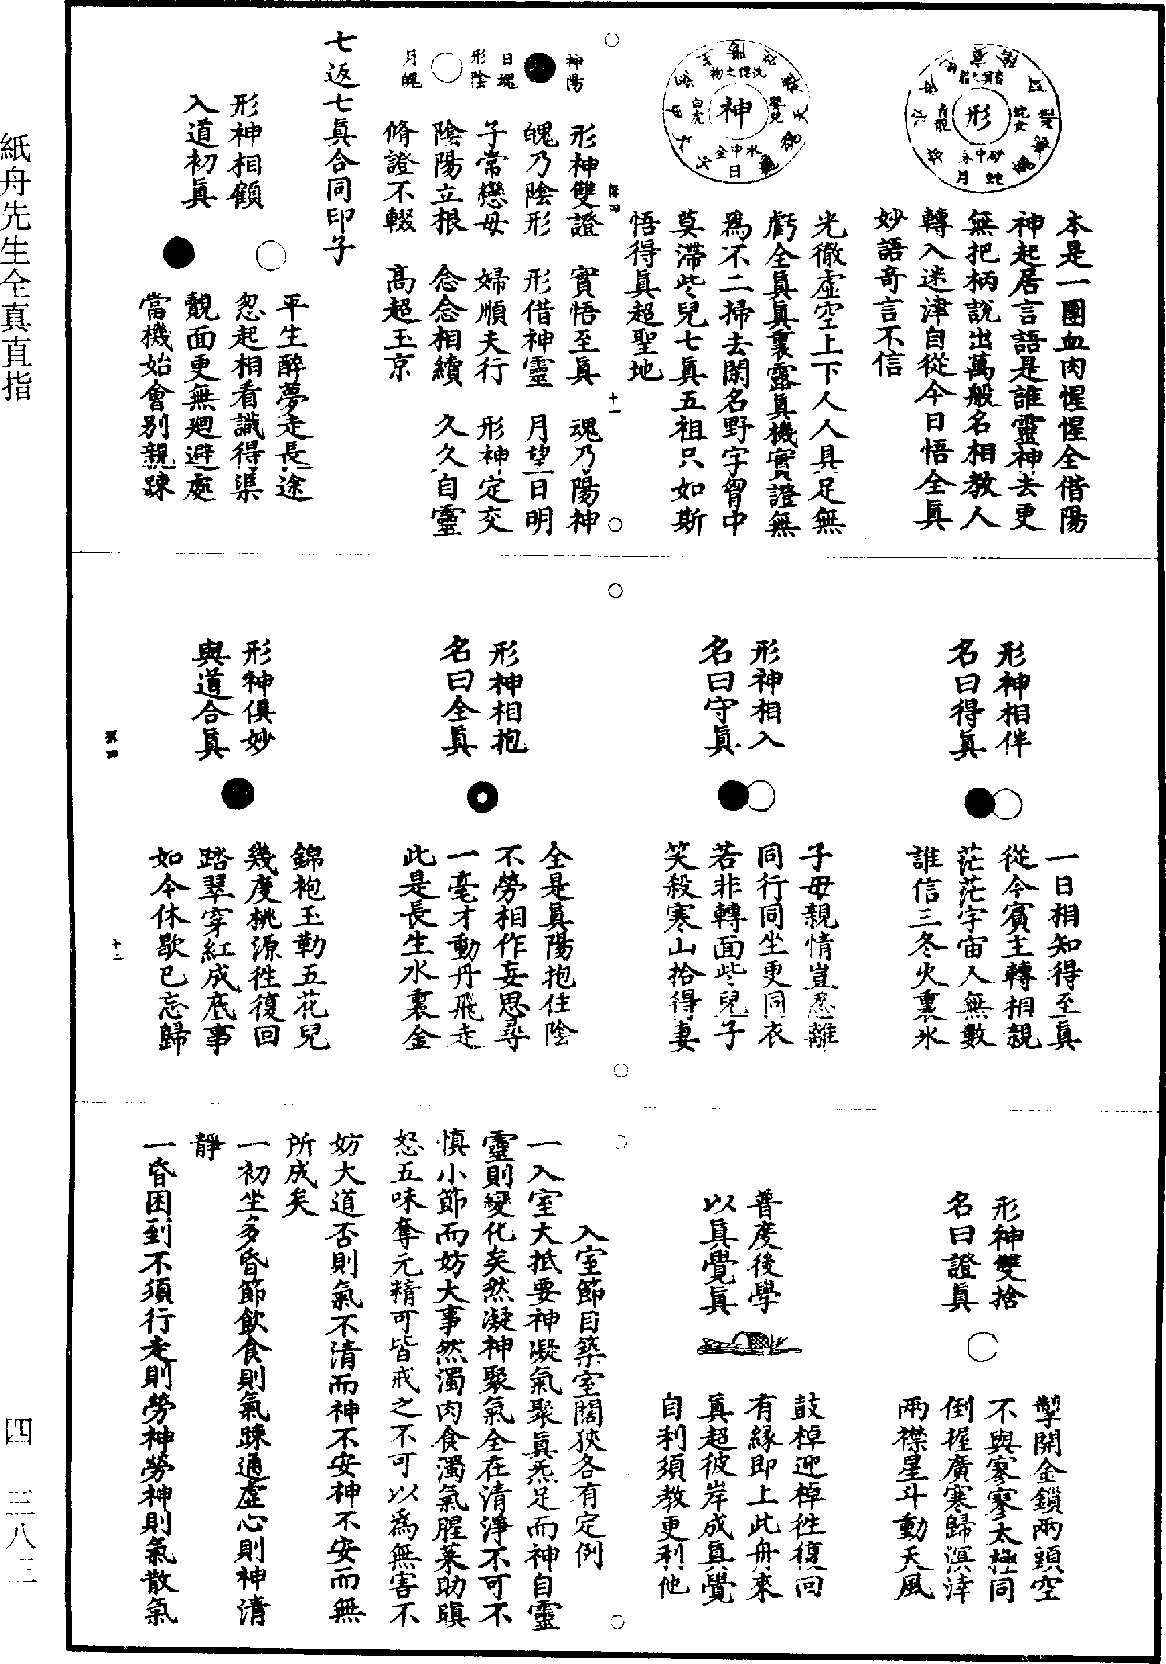 紙舟先生全真直指
四
三八二
形
神
本是一團血肉惺惺全借陽
神起居言語是誰靈神去更
無把柄說出萬般名相教人
轉入迷津自從今日悟全真
妙語奇言不信
光徹虛空上下人人具足無
虧全真真裏露真機實證無
為不二掃去閑名野字胷中
莫滯些兒七真五祖只如斯
悟得真超聖地
十一
神陽
日魂
形陰
月魄
形神雙證　實悟至真　魂乃陽神
魄乃陰形　形借神靈　月望日明
子常戀母　婦順夫行　形神定交
陰陽立根　念念相續　久久自靈
脩證不輟　高超玉京
七返七真合同印子
形神相顧
入道初真
平生醉夢走長途
忽起相看識得渠
覿面更無廻避處
當機始會別親踈
形神相伴
名曰得真
一日相知得至真
從今賓主轉相親
茫茫宇宙人無數
誰信三冬火裏氷
形神相入
名曰守真
子母親情豈忍離
同行同坐更同衣
若非轉面些兒子
笑殺寒山拾得妻
形神相抱
名曰全真
全是真陽抱住陰
不勞相作妄思尋
一毫才動丹飛走
此是長生水裏金
形神俱妙
與道合真
錦袍玉勒五花兒
幾度桃源往復回
踏翠穿紅成底事
如今休歇已忘歸
十二
形神雙捨
名曰證真
掣開金鎖兩頭空
不與寥寥太極同
倒握廣寒歸溟涬
兩襟星斗動天風
普度後學
以真覺真
鼓棹迎棹往復回
有緣即上此舟來
真超彼岸成真覺
自利須教更利他
入室節目築室闊狹各有定例
一入室大抵要神凝氣聚真炁足而神自靈
靈則變化矣然凝神聚氣全在清淨不可不
慎小節而妨大事然濁肉食濁氣腥菜助瞋
怒五味奪元精可皆戒之不可以為無害不
妨大道否則氣不清而神不安神不安而無
所成矣
一初坐多昏節飲食則氣踈通虛心則神清
靜
一昏困到不須行走則勞神勞神則氣散氣